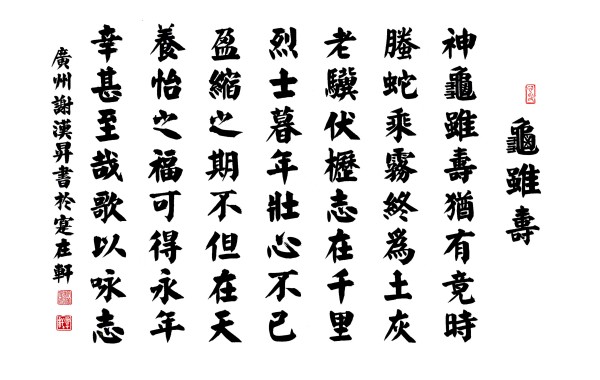 龜雖壽
神龜雖壽猶有竟時
螣蛇乘霧終為土灰
老驥伏櫪志在千里
烈士暮年壯心不已
盈縮之期不但在天
養怡之福可得永年
幸甚至哉歌以咏志
廣州謝漢昇書於寔在軒